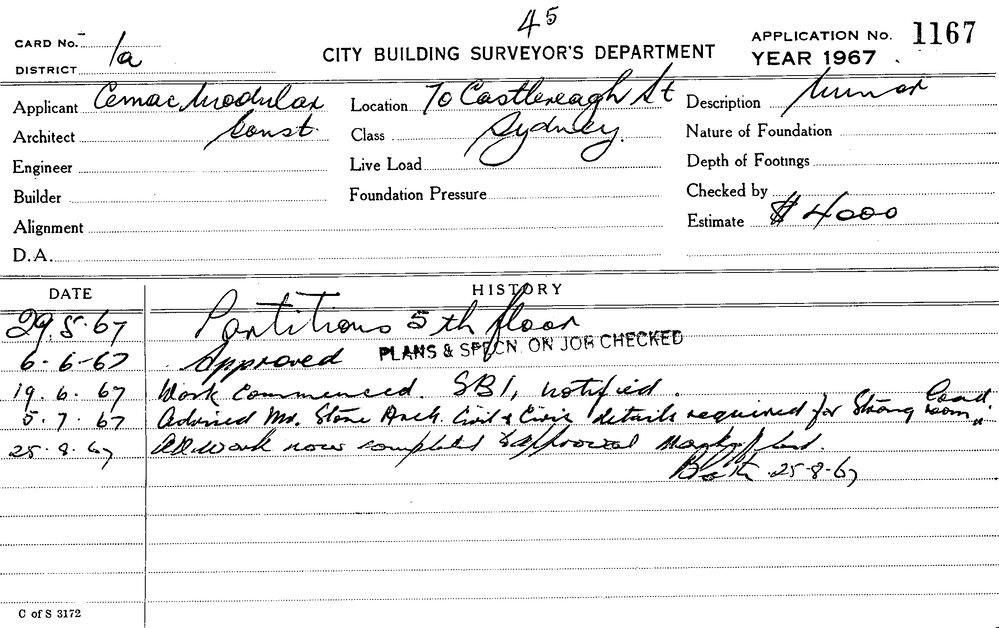 45
CARD No. 1a
DISTRICT
CITY BUILDING SURVEYOR'S DEPARTMENT
APPLICATION No. 1167
YEAR 1967
Applicant Cemac Modular
Const.
Location 70 Castlereagh St
Sydney.
Description Minor
Architect
Class
Nature of Foundation
Engineer
Live Load
Depth of Footings
Builder
Foundation Pressure
Checked by
Alignment
Estimate $4000
D.A.
DATE HISTORY
29.5.67 Partitions 5th floor
6-6-67 Approved PLANS & SPECN. ON JOB CHECKED
19.6.67 Work commenced. SBI, notified.
5.7.67 Advised Mr. Stone Arch. Civil & Civic details required for Strong room Load
25.8.67 All work now completed & approval
25-8-67
C of S 3172